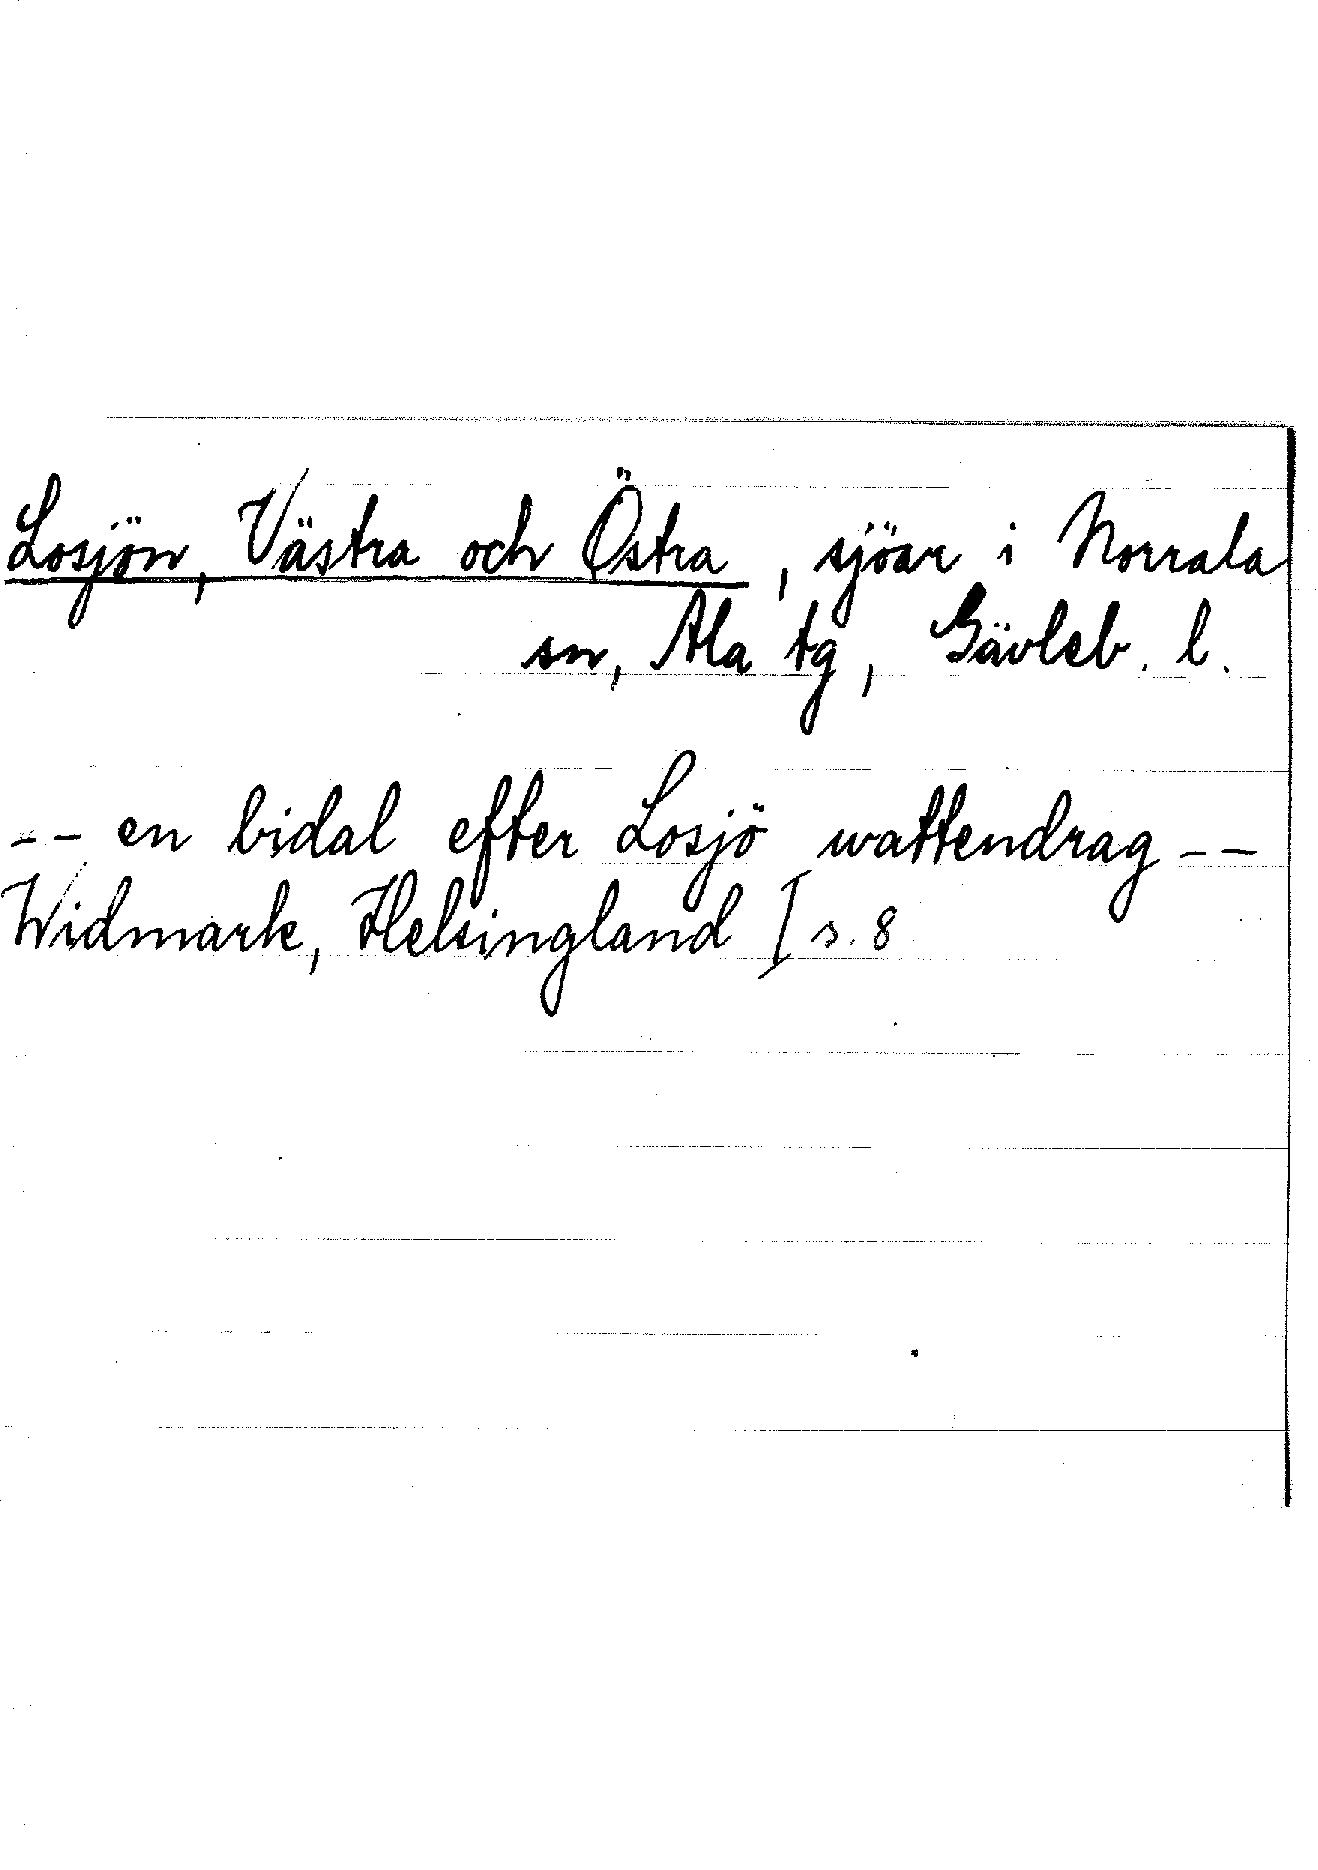 Losjön, Västra och Östra, sjöar i Norrala
sn, Ala tg, Gävleb. l.
-- en bidal efter Losjö wattendrag --
Widmark, Helsingland I s. 8